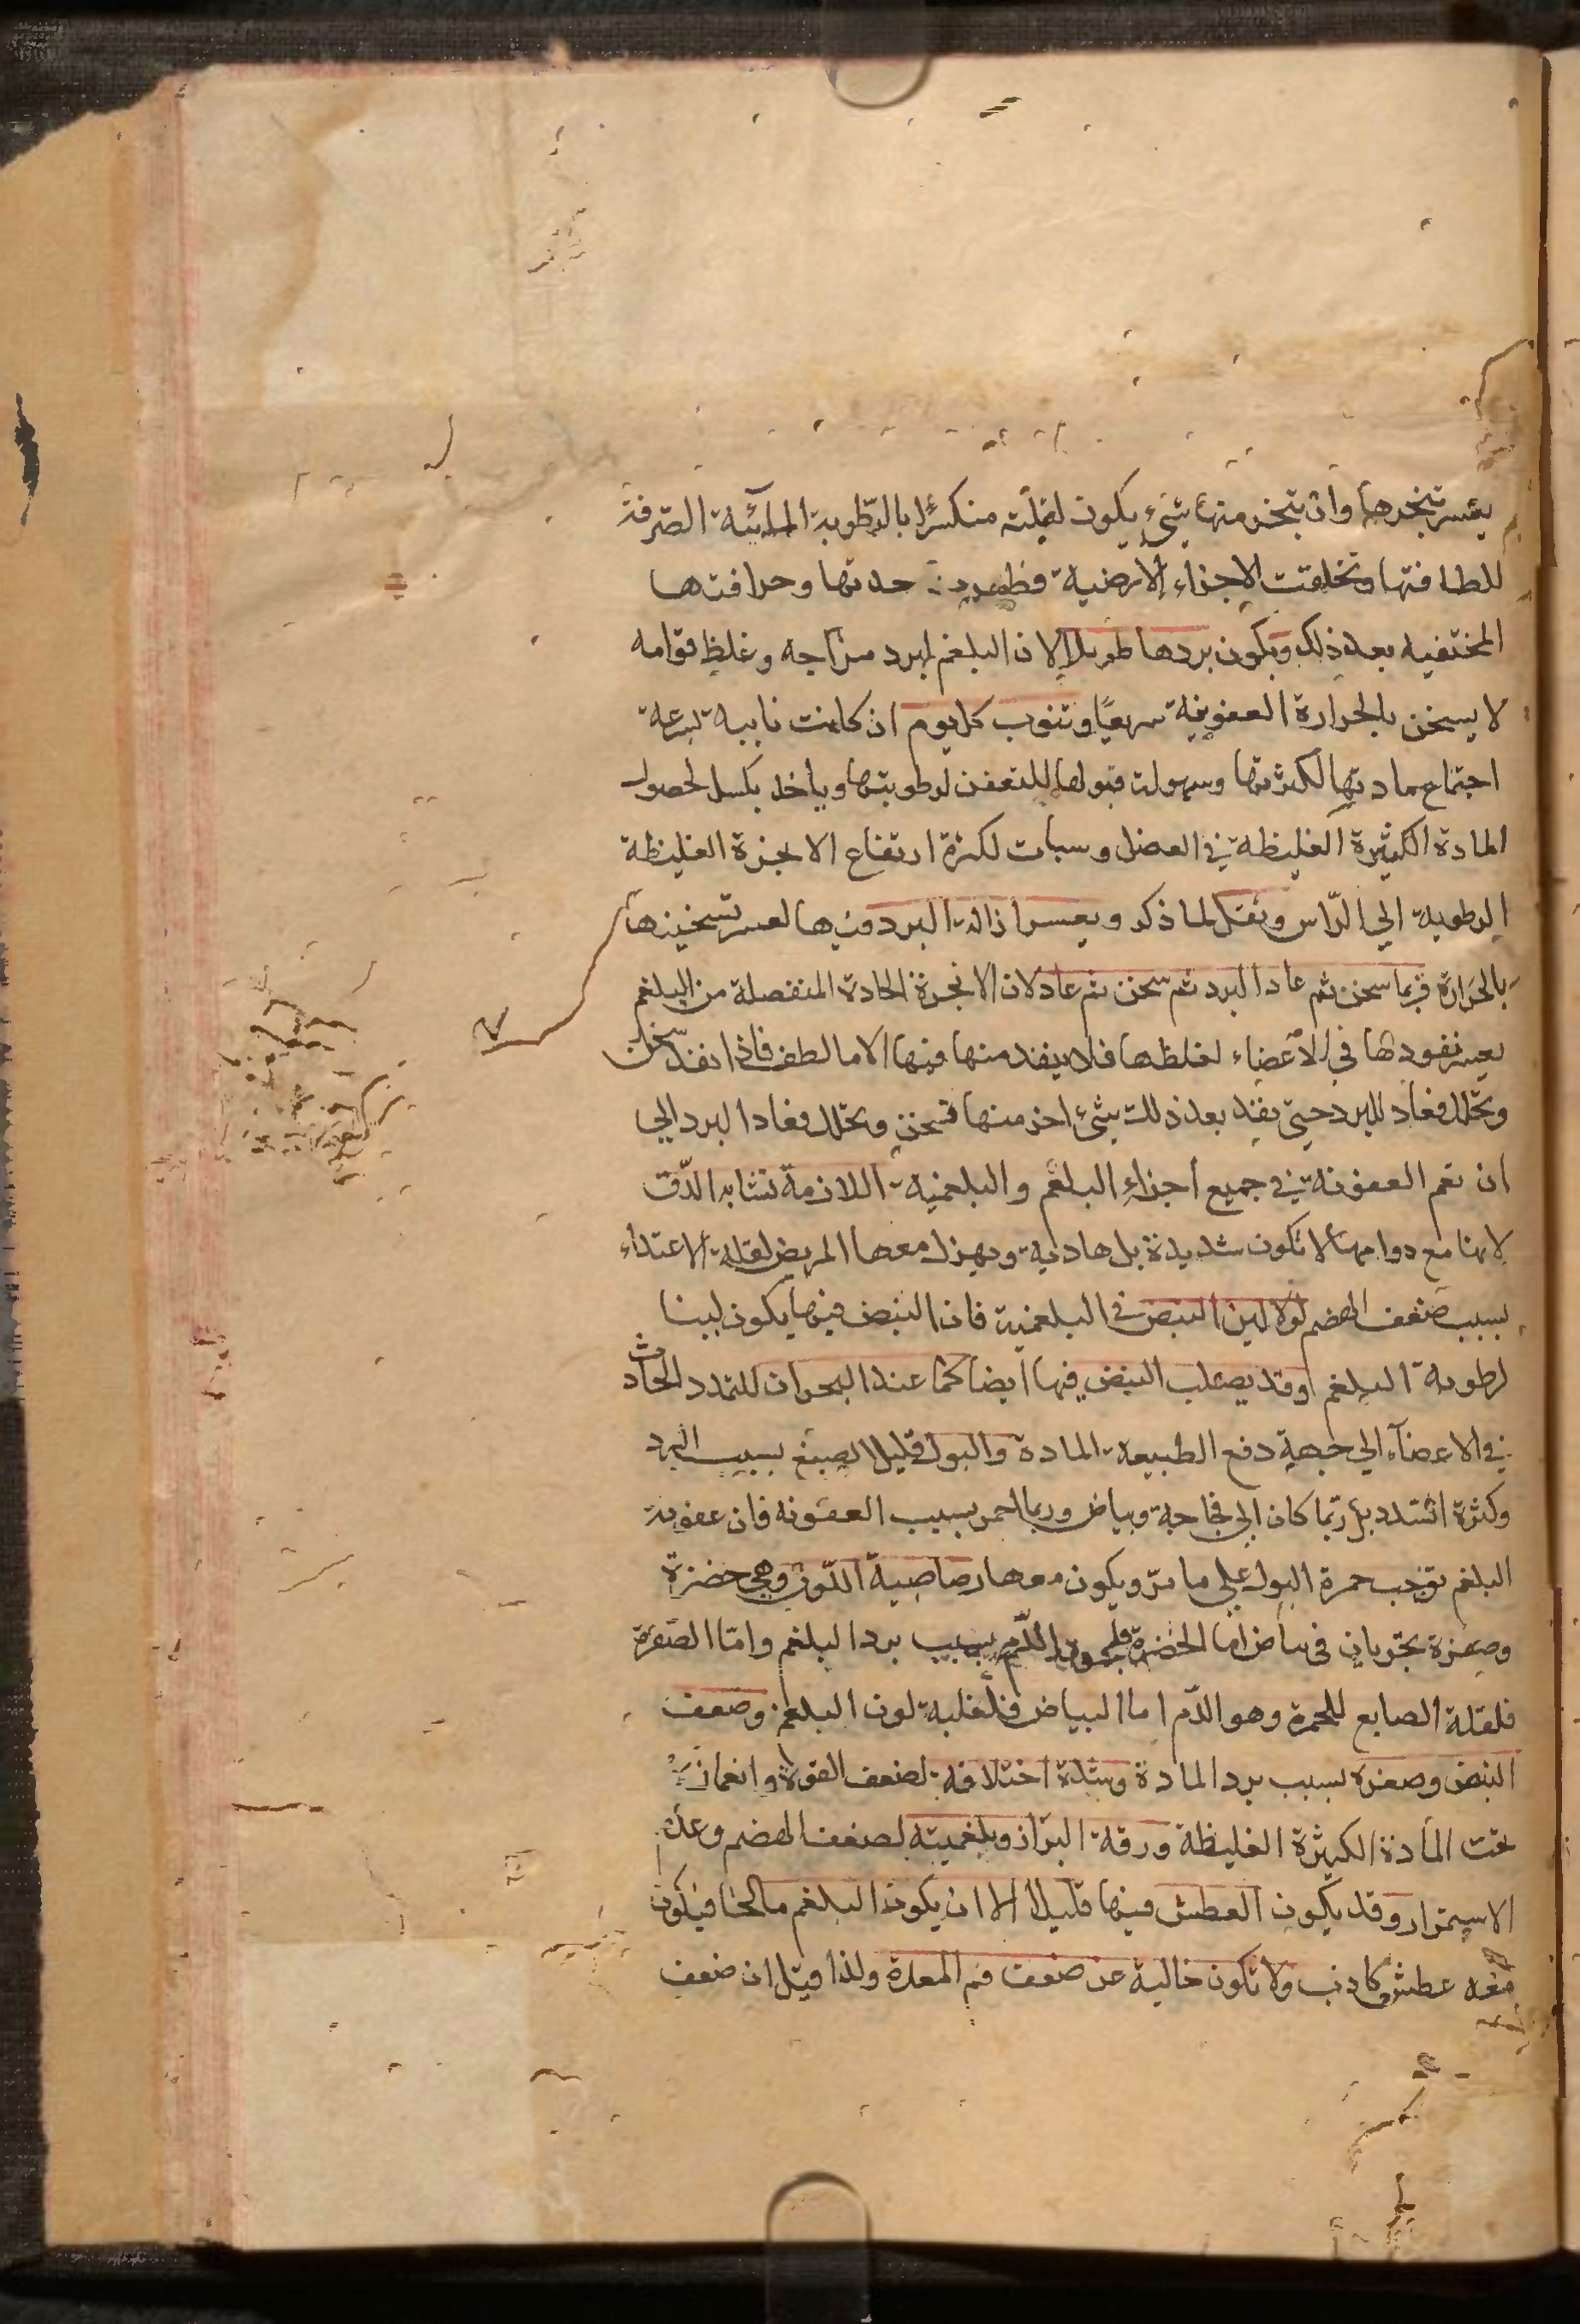 يعسر تبخرها وان تبخر منها شيء يكون لقلته منكسرا بالرطوبة المائية الصرفة
للطافتها وتخلفت الاجزاء الارضية فظهرت حدتها وحرافتها
المختفيه بعد ذلك ويكون بردها طويلا لان البلغم لبرد مزاجه وغلظ قوامه
لا يسخن بالحرارة العفونية سريعا وتنوب كل يوم ان كانت نايبه لسرعة
اجتماع مادتها لكثرتها وسهولة قبولها للتعفن لرطوبتها وياخذ بكسل لحصول
المادة الكثيرة الغليظة في العضل وسبات لكثرة ارتفاع الابخرة الغليظة
الرطوبية الي الراس وثقل لما ذكر ويعسر ازالة البرد فيها لعسر تسخينها
بالحرارة فربما سخن ثم عاد البرد ثم سخن ثم عاد لان الابخرة الحادة المنفصلة من البلغم
يعسر نفوذها في الاعضاء لغلظها فلا ينفذ منها فيها الا ما لطف فاذا نفذ سخن
وتحلل فعاد للبرد حتي ينفذ بعد ذلك شئ اخر منها فسخن وتحلل فعاد البرد الي
ان تعم العفونة في جميع اجزاء البلغم والبلغمية اللازمة تشابه الدق
لانها مع دوامها لا تكون شديدة بل هادية ويهزل معها المريض لقلة الاغتذاء
بسبب ضعف الهضم لولا لين النبض في البلغمية فان النبض فيها يكون لينا
لرطوبة البلغم وقد يصلب النبض فيها ايضا كما عند البحران للتمدد الحادث
في الاعضاء الي جهة دفع الطبيعة المادة والبول قليل الصبغ بسبب البرد
وكثرة السدد بل ربما كان الي فجاجة وبياض وربما احمر بسبب العفونه فان عفونة
البلغم توجب حمرة البول علي ما مر ويكون معها رصاصية اللون وهي خضرة
وصفرة تجريان في بياض اما الخضرة فلجمود الدم بسبب برد البلغم واما الصفرة
فلقلة الصابغ للحمرة وهو الدم اما البياض فلغلبة لون البلغم وضعف
النبض وصغره بسبب برد المادة وشدة اختلافه لضعف القوة وانغمازها
تحت المادة الكثيرة الغليظة ورقة البراز وبلغميته لضعف الهضم وعدم
الاستمرار وقد يكون العطش فيها قليلا الا ان يكون البلغم مالحا فيكون
معه عطش كاذب ولا تكون خالية عن ضعف فم المعدة ولذا قيل ان ضعف